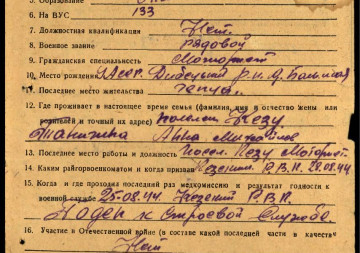 6. На ВУС 133
7. Должностная квалификация Нет.
8. Военное звание рядовой
9. Гражданская специальность Моторист
10. Место рождения
11. Последнее место жительства
12. Где проживает в настоящее время семья (фамилия, имя и отчество жены или
родителей и точный их адрес) Кезу
Анна
13. Последнее место работы и должность посел. Кезу Моторист
14. Каким райгорвоенкоматом и когда призван Кезским Р.В.К. 29.08.44
15. Когда и где проходил последний раз медкомиссию и результат годности к
военной службе 25-08.44. Кезский Р.В.К.
Годен к строевой службе.
16. Участие в Отечественной войне (в составе какой последней части и в качестве
Нет